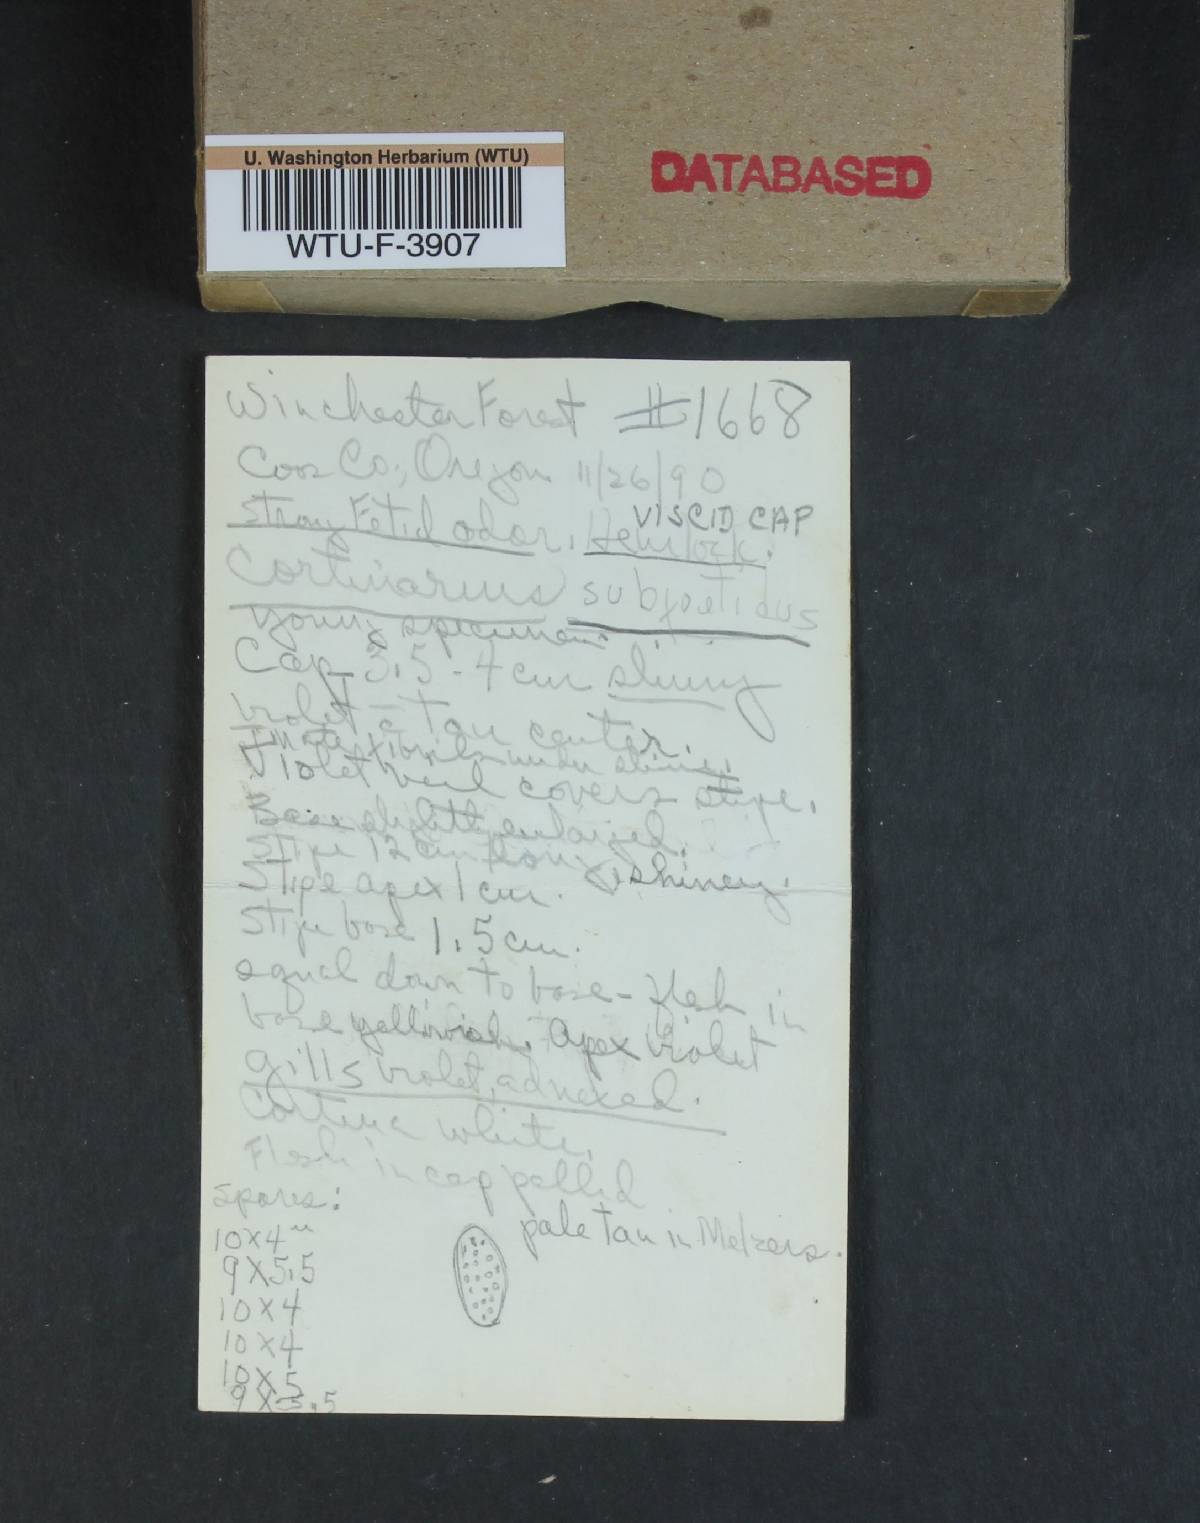 U. Washington Herbarium (WTU)
WTU-F-3907
DATABASED
Winchester Forest #1668
Coos Co., Oregon 11/26/90
VISCID CAP
Strong Fetid odor. Hemlock.
Cortinarius subfoetidus
Young specimen.
Cap 3.5 - 4 cm slimy
violet c̄ tan center.
Innate fibrils under slime.
Violet veil covers stipe.
Base slightly enlarged.
Stipe 12 cm long shiney.
Stipe apex 1 cm.
Stipe base 1.5 cm.
equal down to base - flesh in
base yellowish. apex violet
gills violet, adnexed.
Cortina white.
Flesh in cap pallid
Spores:
10X4 u
pale tan in Melzers.
9X5.5
10X4
10X4
10X5
9X5.5